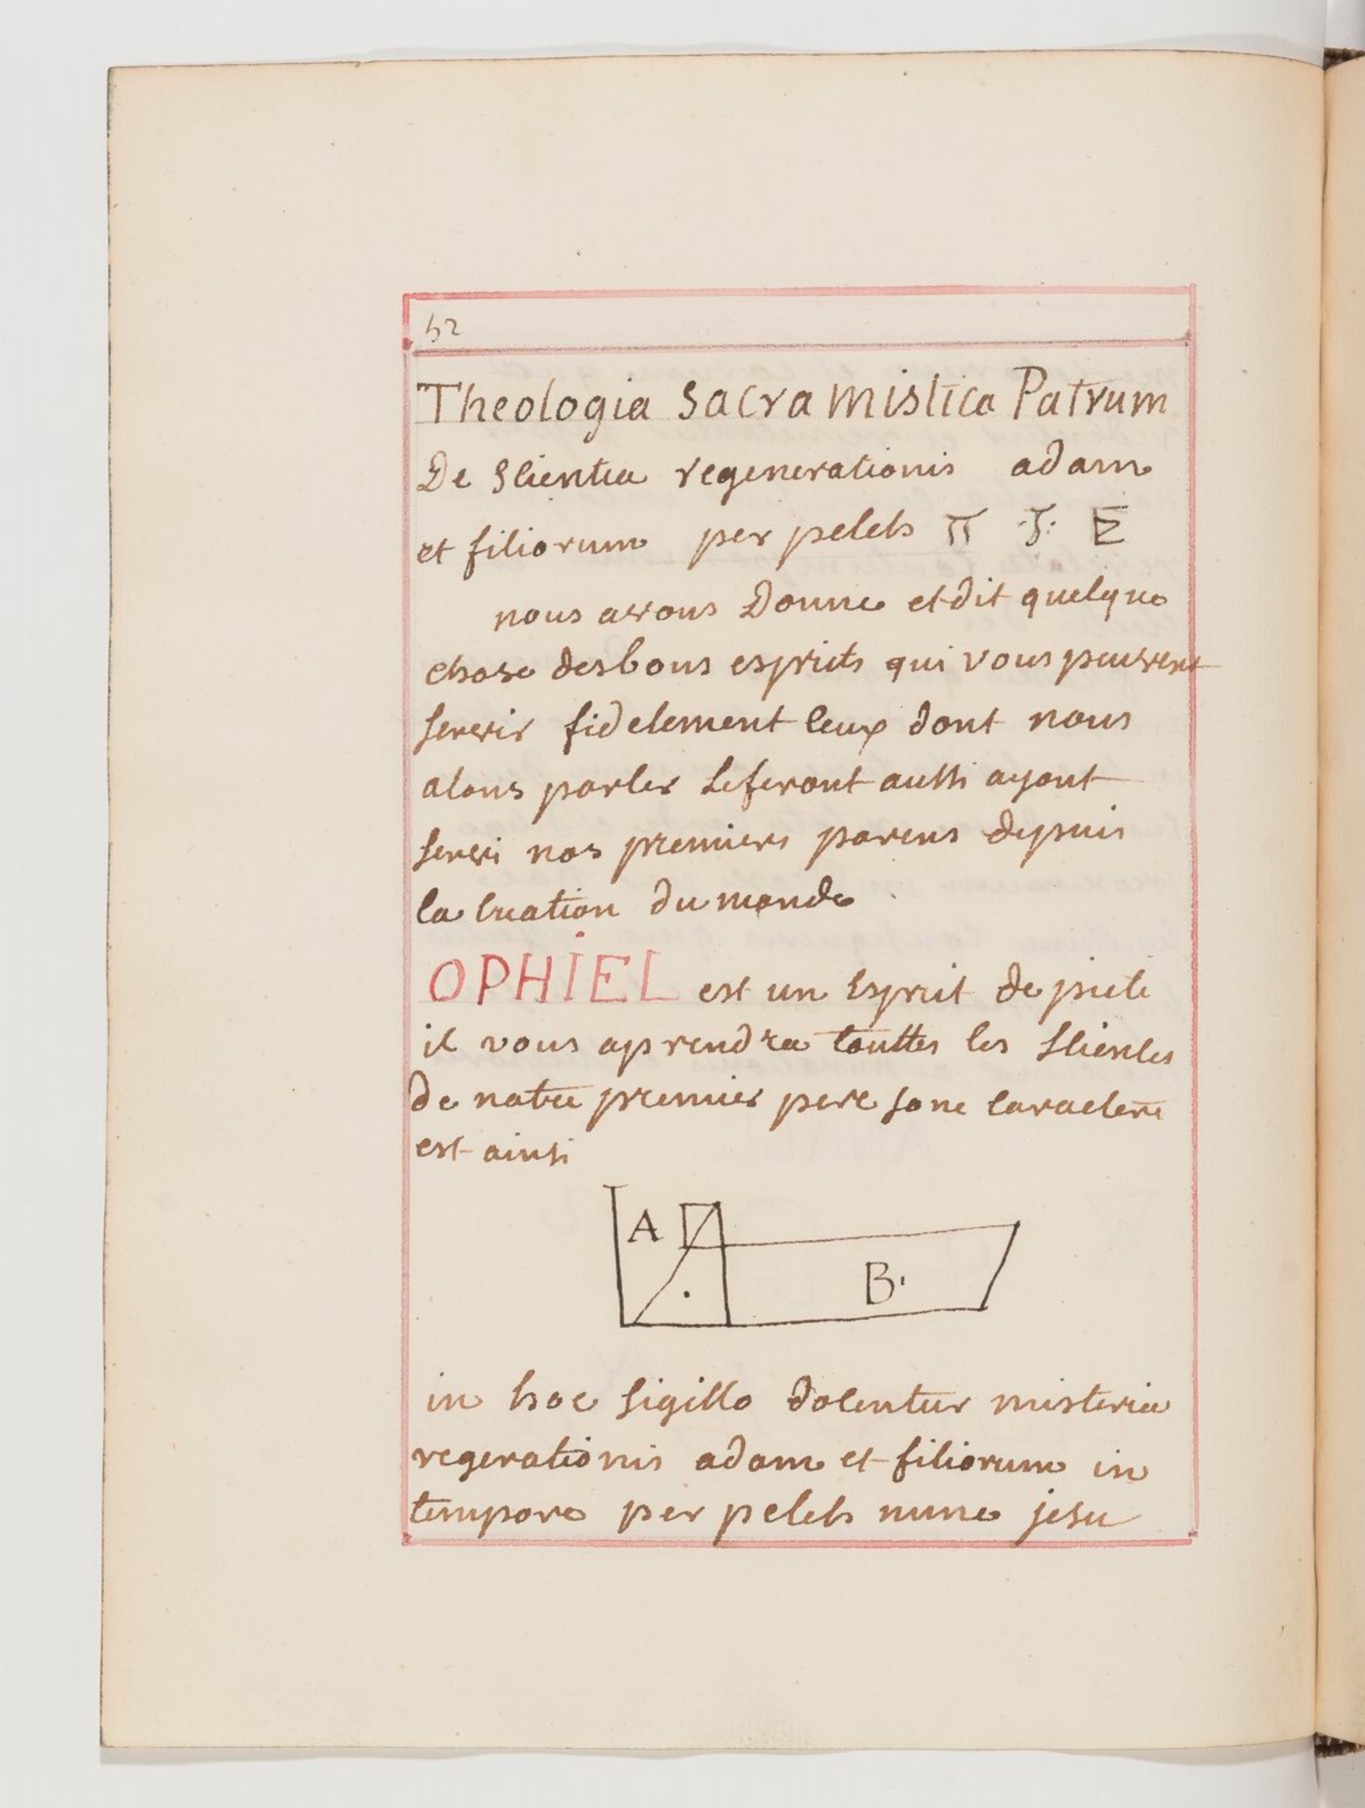 52
Theologia sacra mistica Patrum
De scientia regenerationis adam
et filiorum per peleh
nous avons donne et dit quelque
chose des bons esprits qui vous peuvent
servir fidelement ceux dont nous
alons parler le feront aussi ayant
servi nos premiers parens depuis
la creation du monde
OPHIEL est un esprit de pieté
il vous aprendra touttes les sciences
de notre premier pere sone caractere
est ainsi
A
B
in hoc sigillo docentur misteria
regerationis adam et filiorum in
tempore per peleh nunc jesu